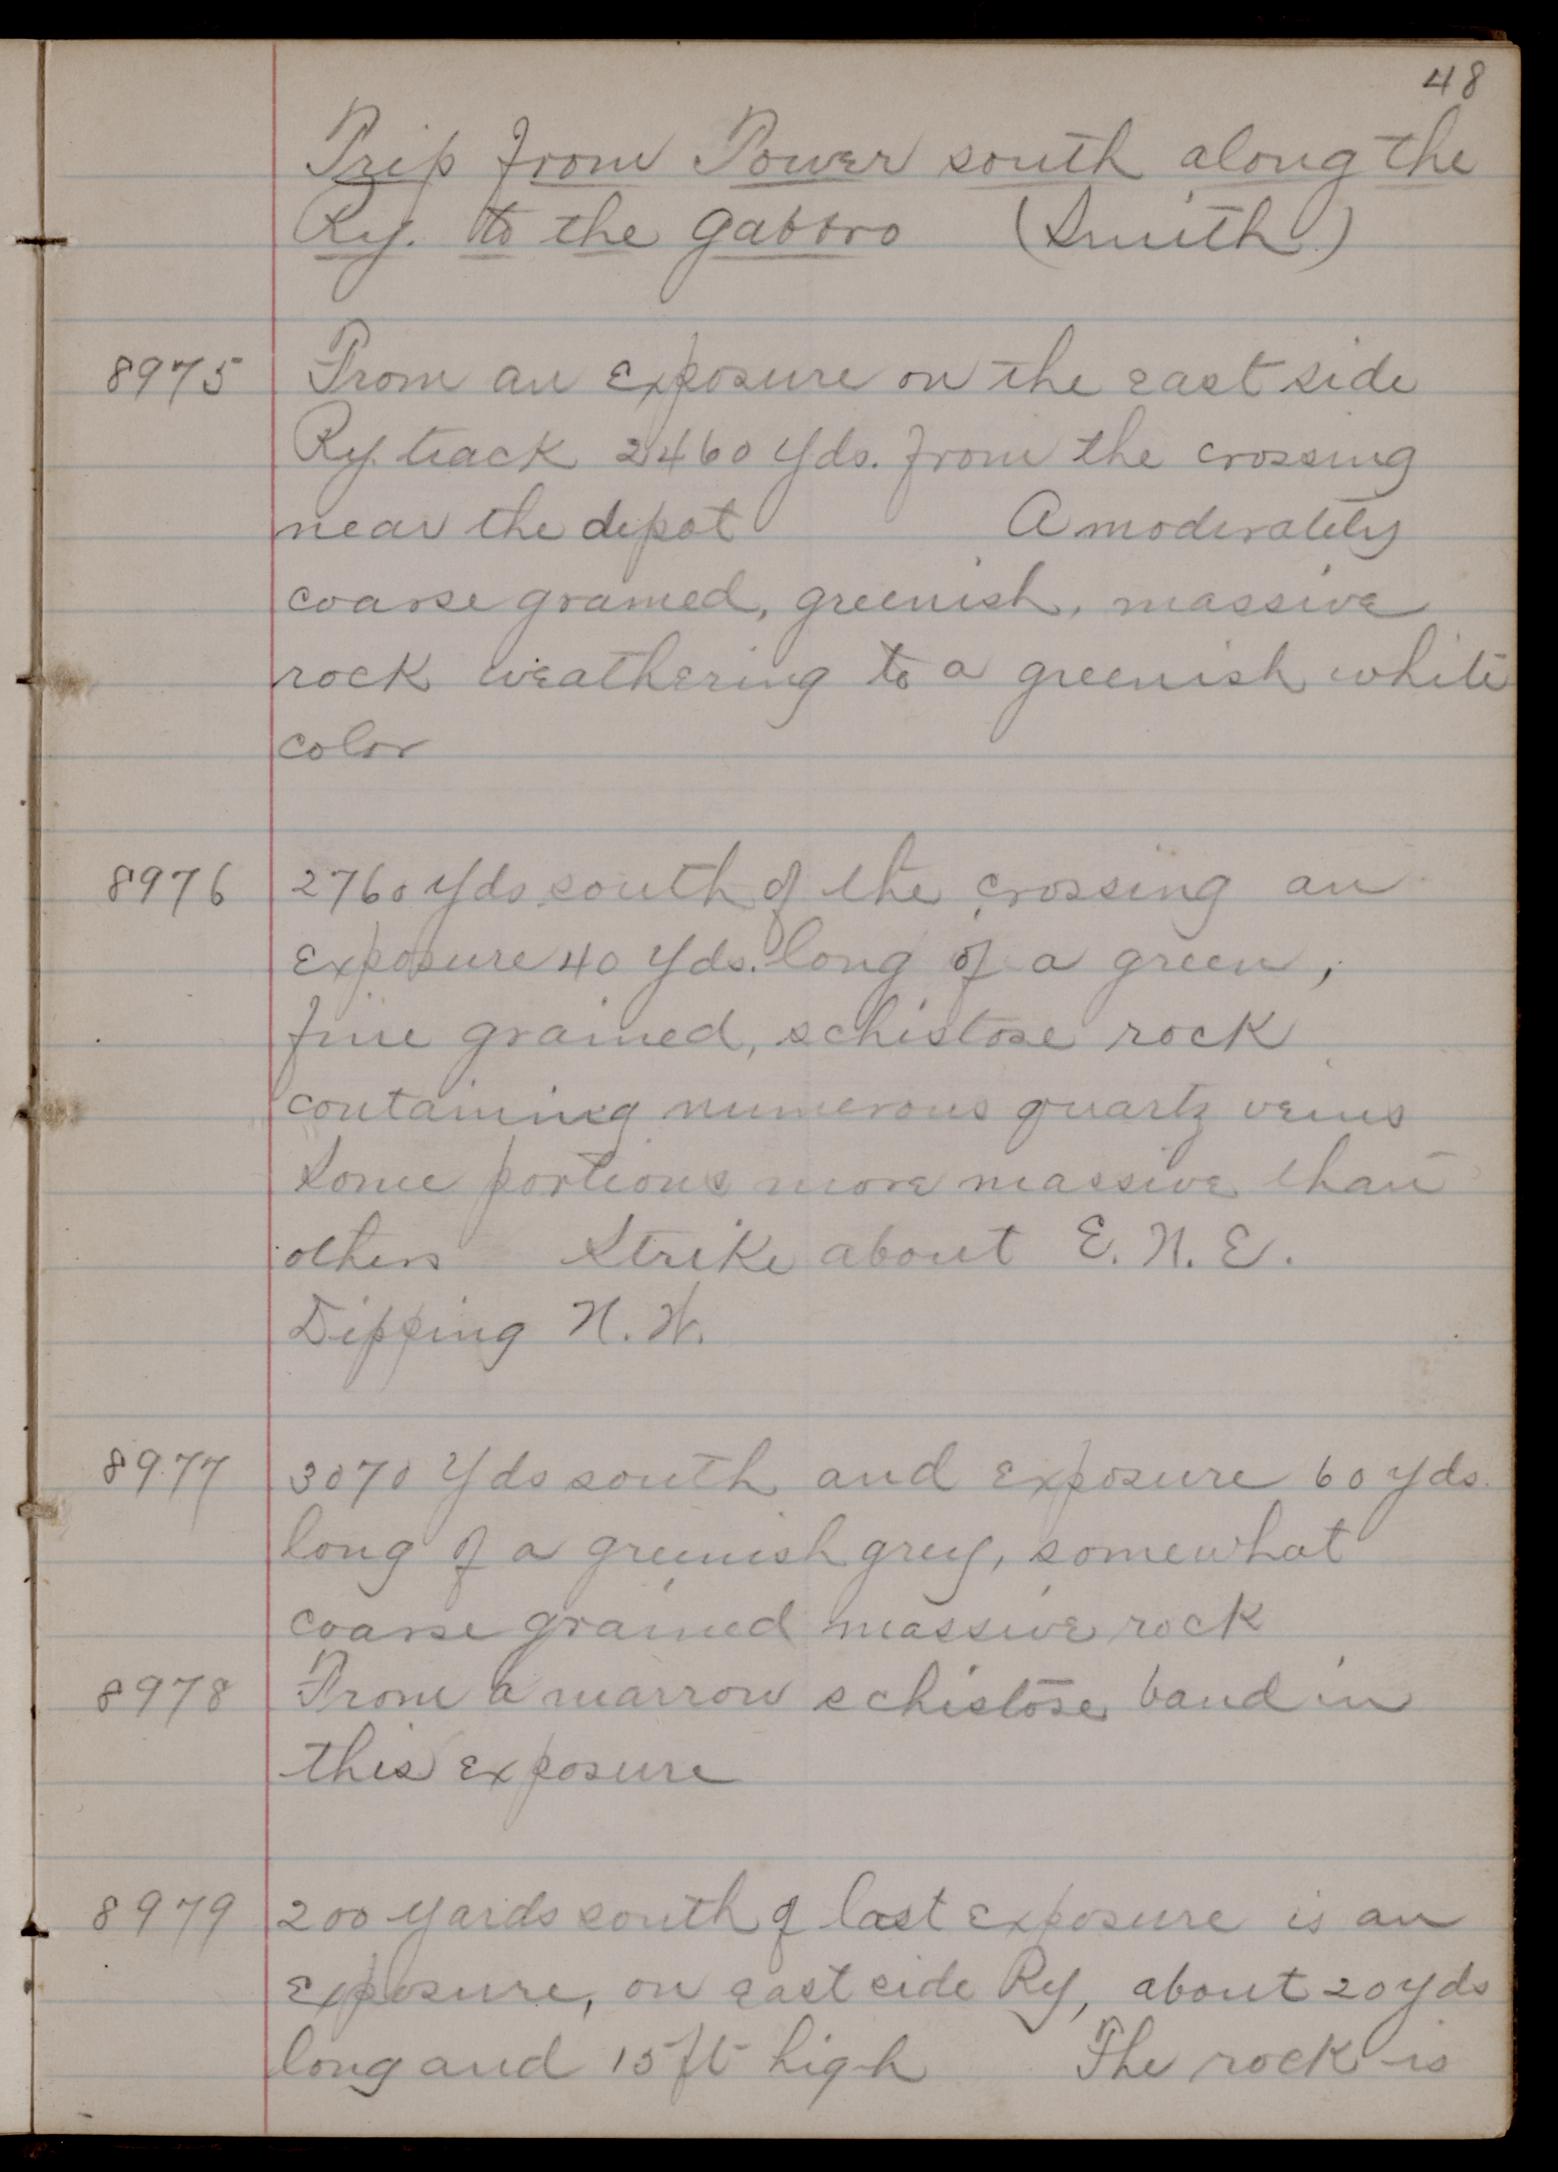 48
Trip from Power south along the
Ry. to the gabbro (Smith)
8975 From an exposure on the east side
Ry. track 2460 Yds. from the crossing
near the depot A moderately
coarse grained, greenish, massive
rock weathering to a greenish white
color
8976 2760 Yds south of the crossing an
exposure 40 Yds. long of a green,
fine grained, schistose rock
containing numerous quartz veins
Some portions more massive than
others Strike about E. N. E.
Dipping N. W.
8977 3070 Yds south and exposure 60 yds.
long of a greenish grey, somewhat
coarse grained massive rock
8978 From a narrow schistose band in
this exposure
8979 200 yards south of last exposure is an
exposure, on east side Ry, about 20 yds
long and 15 ft high The rock is